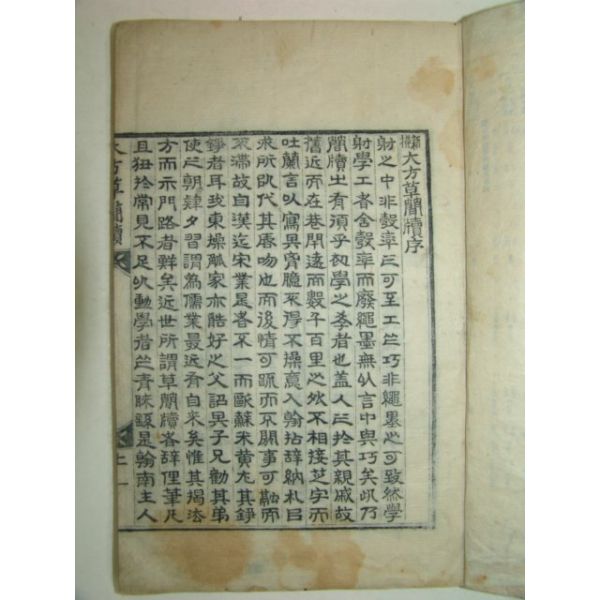 大方草簡牘序
射之中非彀率之可至工之巧非繩墨之可致然學
射學工者舍彀率而廢繩墨無以言中與巧矣此乃
簡牘之有須乎初學之孝者也盖人之於其親戚故
舊近而在巷閈遠而數千百里之外不相接芝宇而
吐蘭言以寫異齊臆不得不操意入翰拈辭納札
求所以代其唇吻也而後情可疏而不關事可融而
不滯故自漢迄宋業是者不一而歐蘇米黃尤其錚
錚者耳我東操觚家亦酷好之父詔其子兄勸其弟
使之朝隷夕習謂為儒業最近有自來矣惟其揭
方而示門路者鮮矣近世所謂草簡牘者辭俚筆凡
且狃於常見不足以動學者之青睞是翰南主人
大方草簡牘
上
一